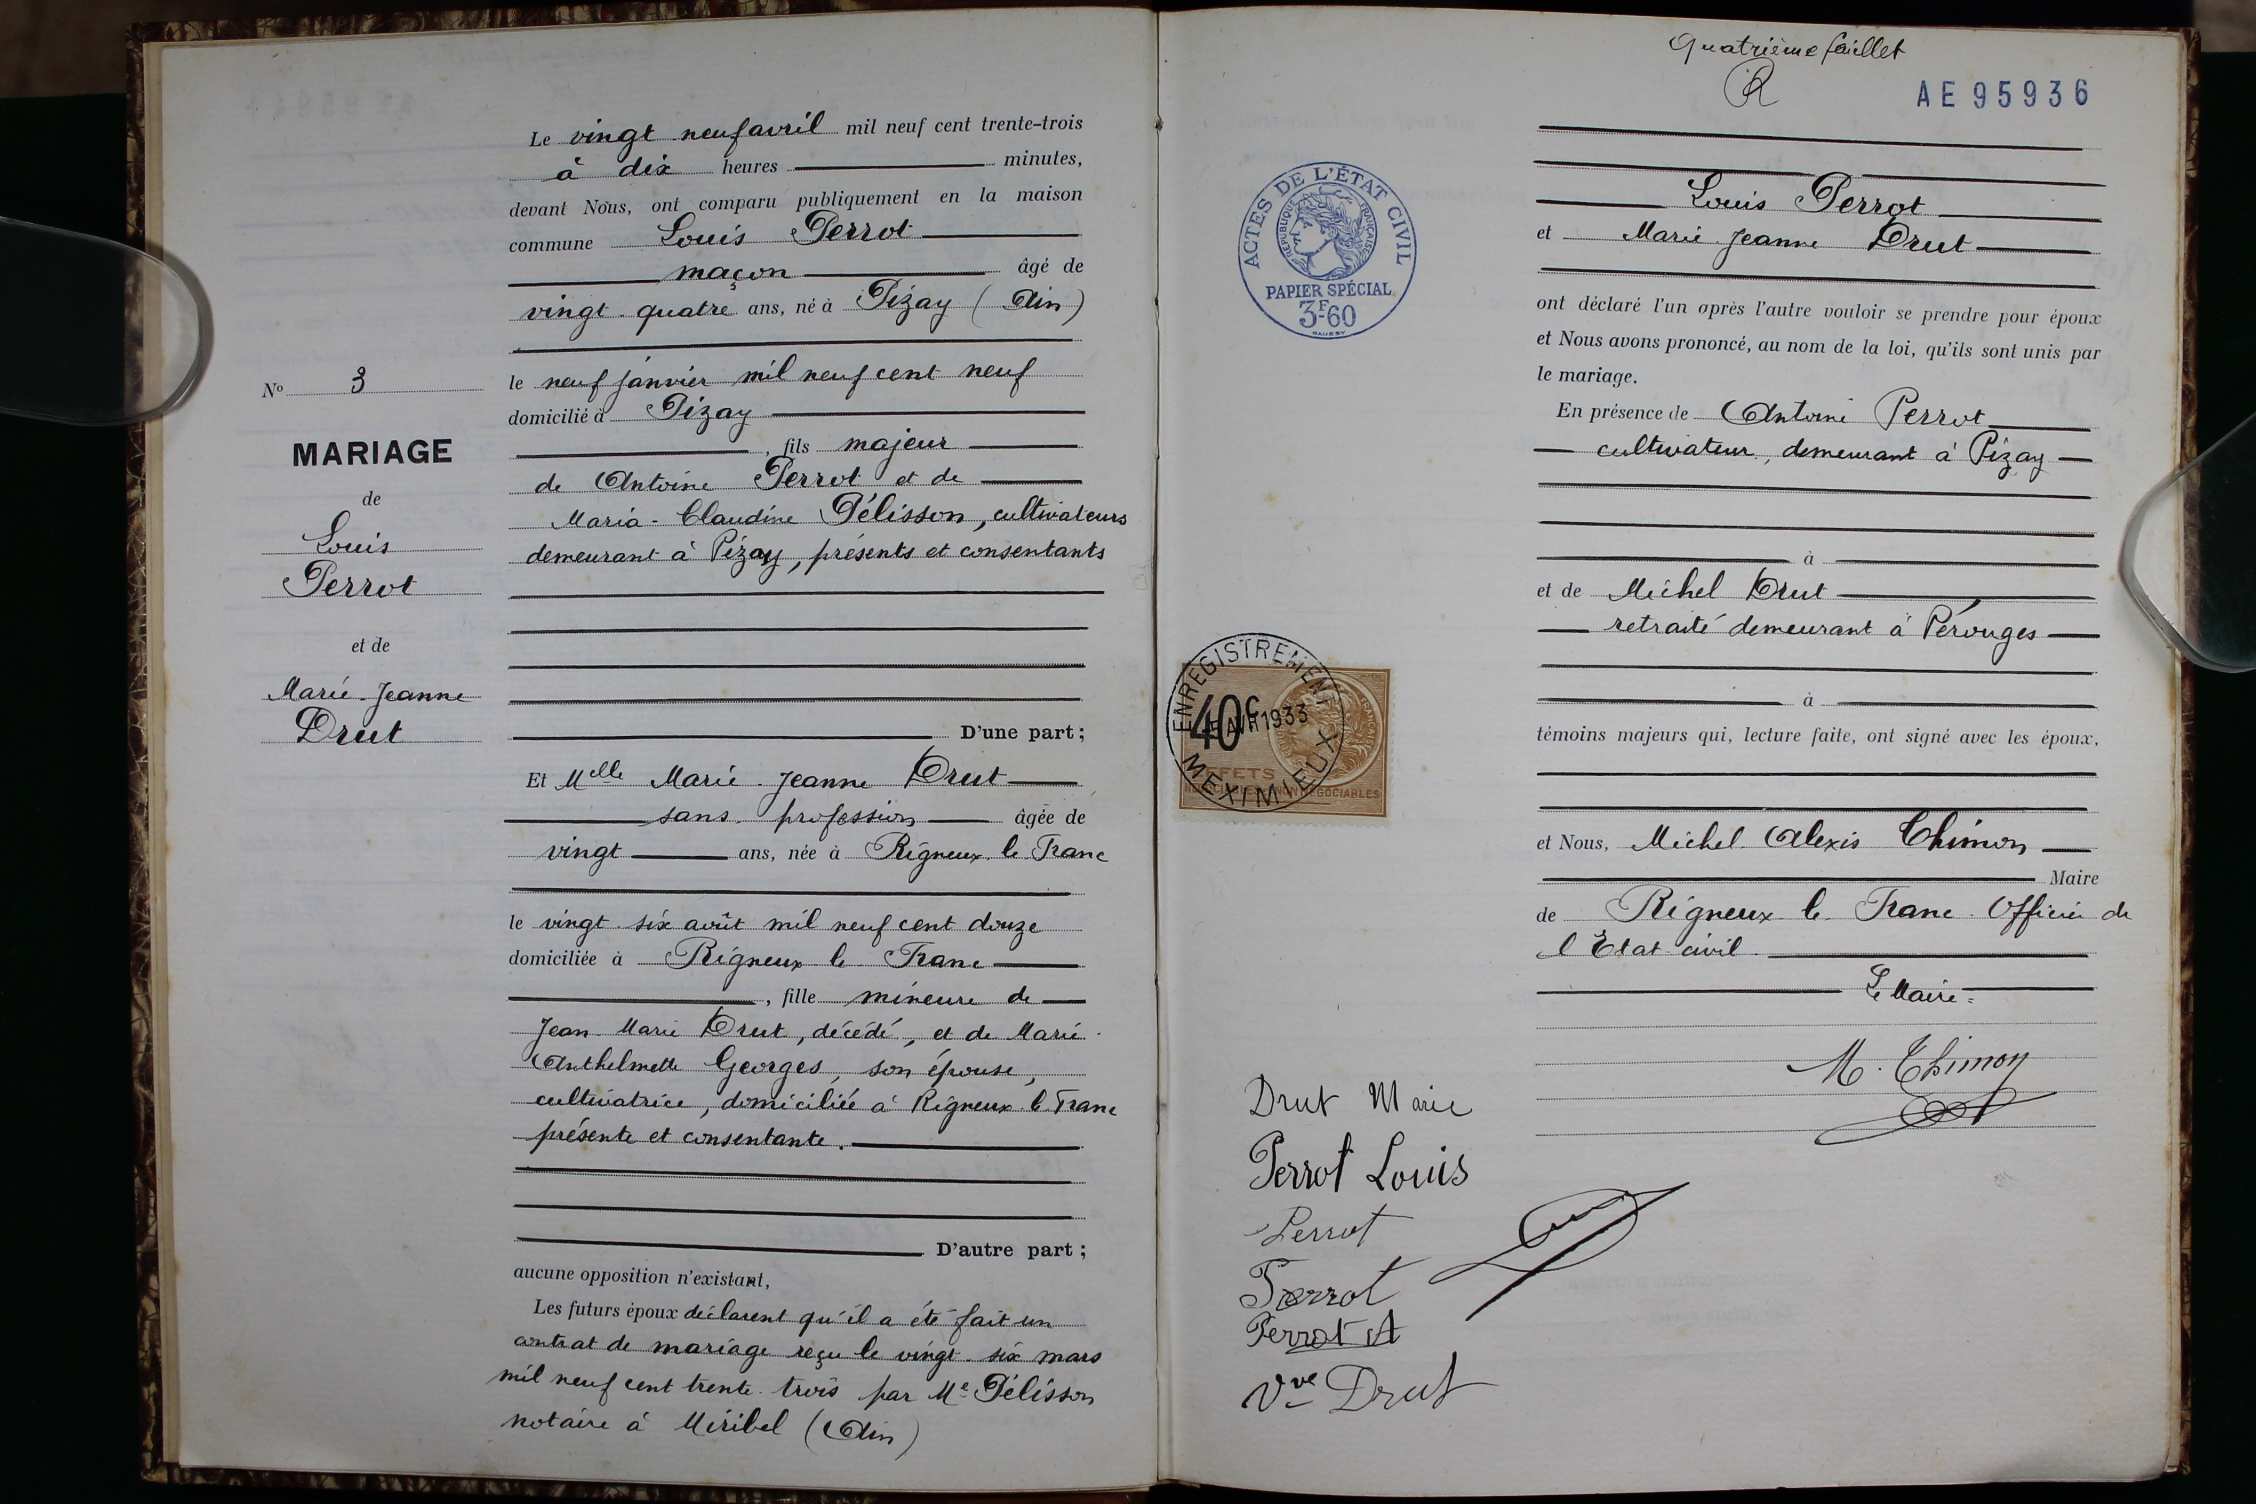 Le vingt neuf avril mil neuf cent trente-trois
à dix heures minutes,
devant Nous, ont comparu publiquement en la maison
commune Louis Perrot
maçon âgé de
vingt-quatre ans, né à Pizay (Ain)
le neuf janvier mil neuf cent neuf
domicilié à Pizay
, fils majeur
de Antoine Perrot et de
Maria-Claudine Pélisson, cultivateurs
demeurant à Pizay, présents et consentants
D'une part;
Et Melle Marie-Jeanne Drut
sans profession âgée de
vingt ans, née à Rigneux le Franc
le vingt-six août mil neuf cent douze
domiciliée à Rigneux le Franc
, fille mineure de
Jean-Marie Drut, décédé, et de Marie-
Anthelmette Georges, son épouse,
cultivatrice, domiciliée à Rigneux le Franc
présente et consentante.
D'autre part;
aucune opposition n'existant,
Les futurs époux déclarent qu'il a été fait un
contrat de mariage reçu le vingt-six mars
mil neuf cent trente-trois par Me Pélisson
notaire à Miribel (Ain)
No 3
MARIAGE
de
Louis
Perrot
et de
Marie-Jeanne
Drut
Quatrième feuillet
AE95936
Louis Perrot
et Marie-Jeanne Drut
ont déclaré l'un après l'autre vouloir se prendre pour époux
et Nous avons prononcé, au nom de la loi, qu'ils sont unis par
le mariage.
En présence de Antoine Perrot
cultivateur, demeurant à Pizay
à
et de Michel Drut
retraité demeurant à Pérouges
à
témoins majeurs qui, lecture faite, ont signé avec les époux,
et Nous, Michel Alexis Thimon
Maire
de Rigneux le Franc Officier de
l'Etat civil.
Le Maire
M. Thimon
ACTES DE L'ÉTAT CIVIL
RÉPUBLIQUE FRANÇAISE
PAPIER SPÉCIAL
3F60
ENREGISTREMENT
40c
AVR 1933
EFFETS
NON NÉGOCIABLES
MEXIMIEUX
Drut Marie
Perrot Louis
Perrot
Perrot
Perrot A
Vve Drut